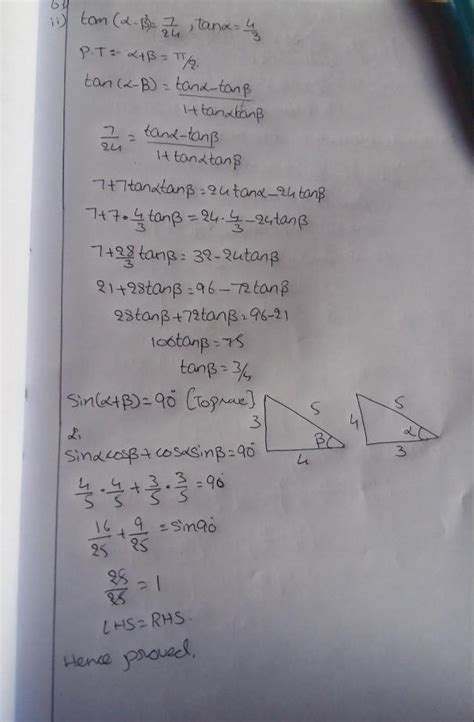 ii) tan(α-β)=7/24, tanα=4/3
P.T:- α+β=π/2.
tan(α-β) = tanα-tanβ/1+tanαtanβ
7/24 = tanα-tanβ/1+tanαtanβ
7+7tanαtanβ=24tanα-24tanβ
7+7·4/3tanβ=24·4/3-24tanβ
7+28/3tanβ=32-24tanβ
21+28tanβ=96-72tanβ
28tanβ+72tanβ=96-21
100tanβ=75
tanβ=3/4
Sin(α+β)=90° [To prove]
3 5 β 4
4 5 α 3
sinαcosβ+cosαsinβ=90°
4/5·4/5+3/5·3/5=90°
16/25+9/25=sin90°
25/25=1
LHS=RHS.
Hence proved.